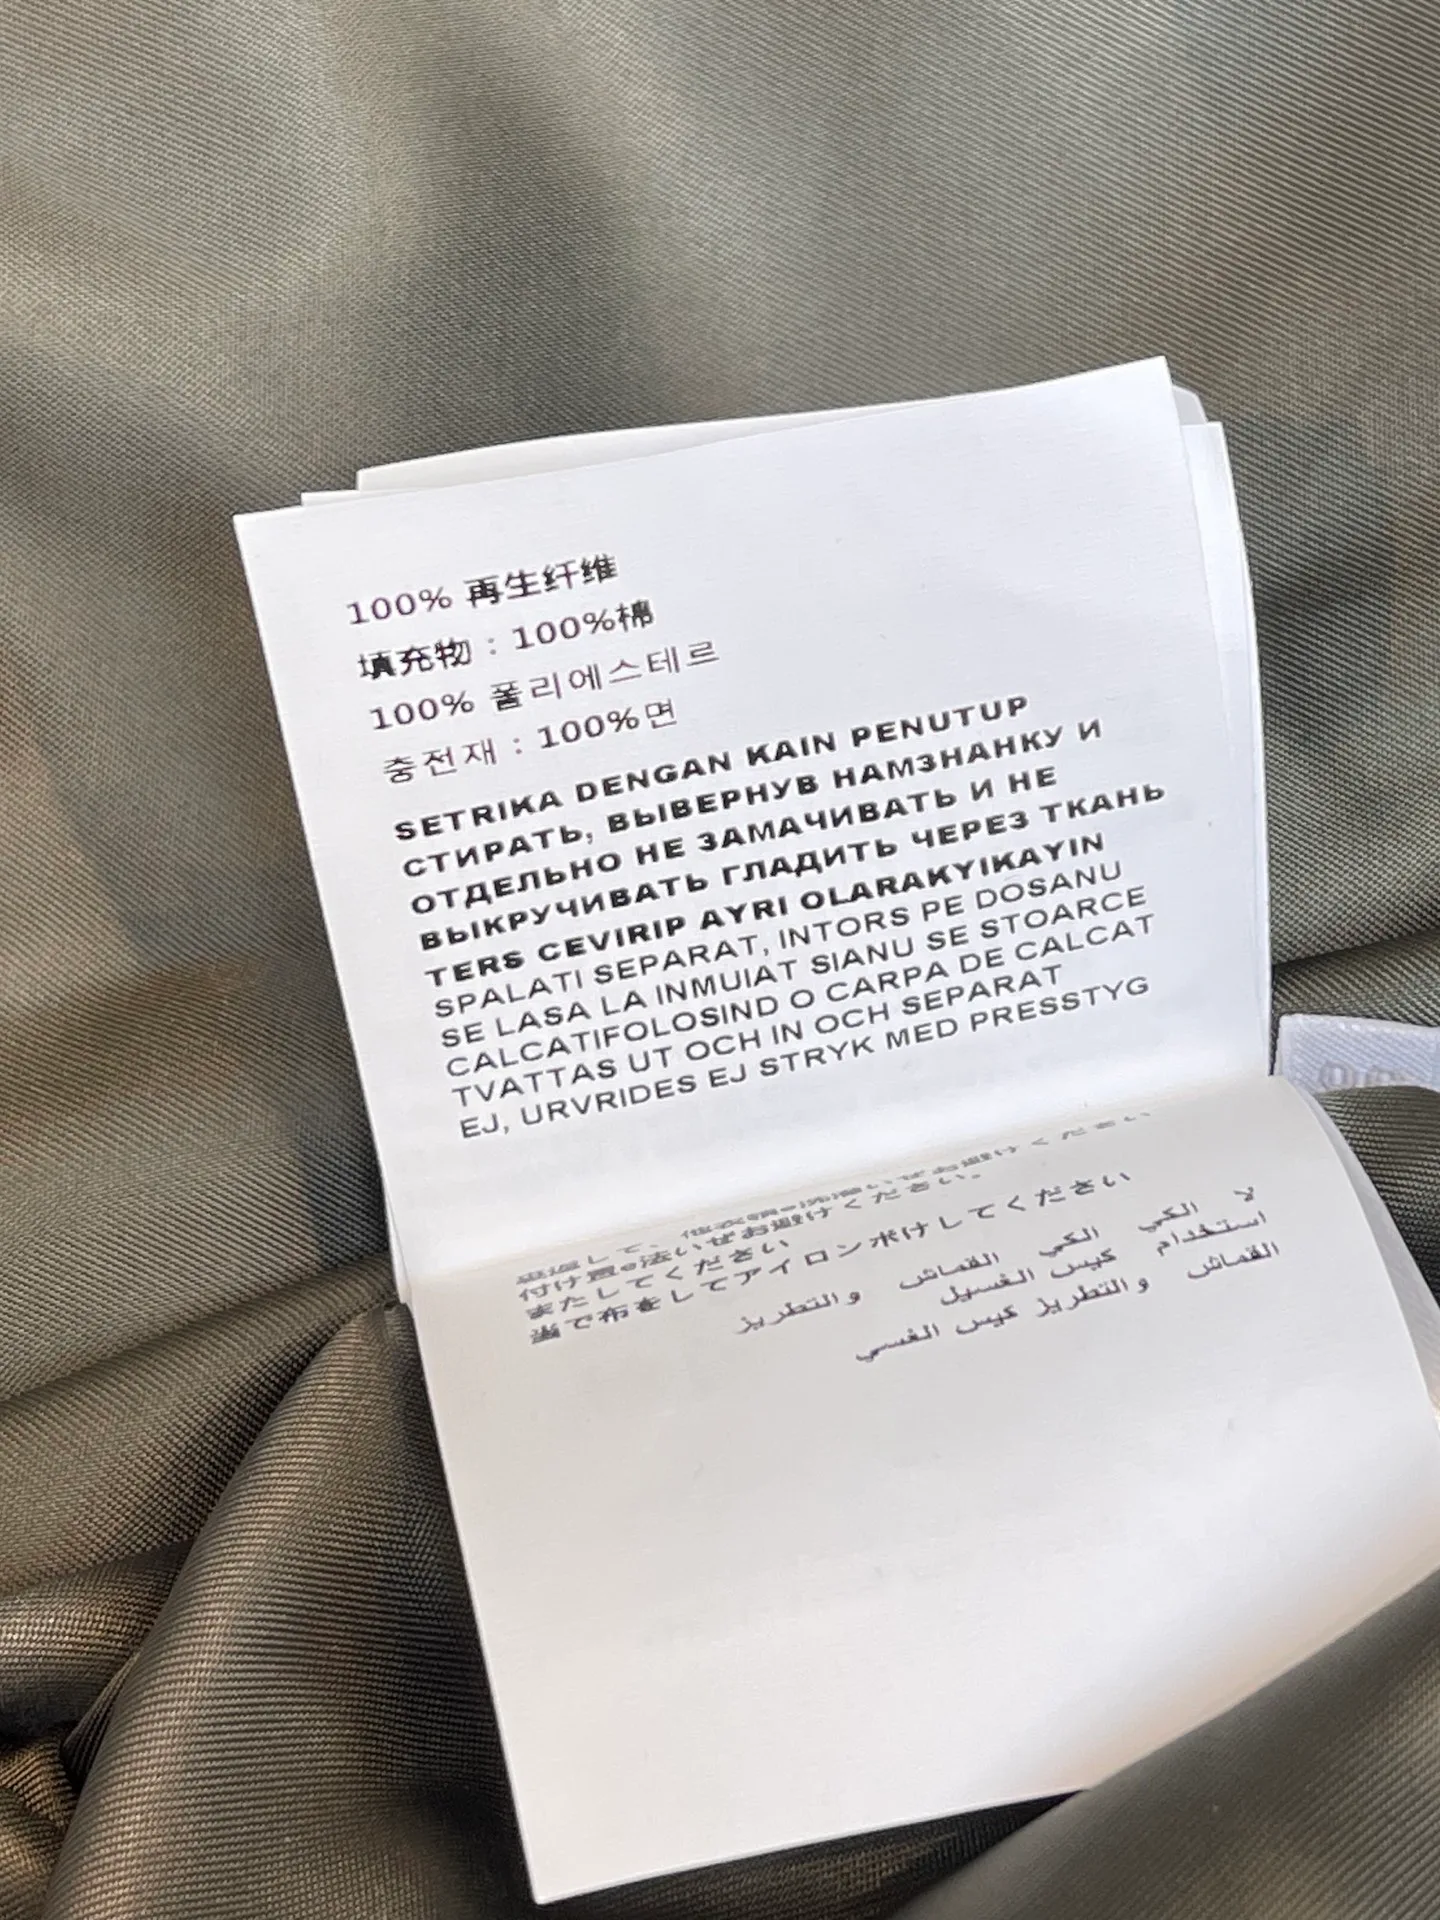 100% 再生纤维
填充物 : 100%棉
100% 폴리에스테르
충전재 : 100%면
SETRIKA DENGAN KAIN PENUTUP
СТИРАТЬ, ВЫВЕРНУВ НАМЗНАНКУ И
ОТДЕЛЬНО НЕ ЗАМАЧИВАТЬ И НЕ
ВЫКРУЧИВАТЬ ГЛАДИТЬ ЧЕРЕЗ ТКАНЬ
TERS CEVIRIP AYRI OLARAKYIKAYIN
SPALATI SEPARAT, INTORS PE DOSANU
SE LASA LA INMUIAT SIANU SE STOARCE
CALCATIFOLOSIND O CARPA DE CALCAT
TVATTAS UT OCH IN OCH SEPARAT
EJ, URVRIDES EJ STRYK MED PRESSTYG
お避けください
付け置e法いぜお避けください。
またしてください
当て布をしてアイロンボけしてください
لا الكي الكي القماش والتطريز
استخدام كيس الغسيل
القماش والتطريز كيس الغسي